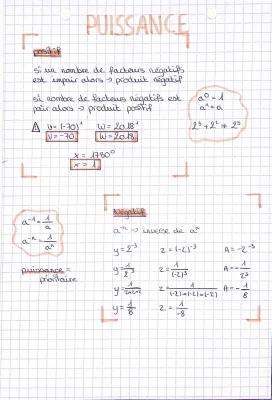 PUISSANCE
positif
si un nombre de facteurs négatifs
est impair alors → produit négatif
si nombre de facteurs négatifs est
pair alors → produit positif
a⁰ = 1
a¹ = a
2³ + 2² ≠ 2⁵
V = (-70)¹ W = 20.18¹
V = -70 W = 20.18
x = 1780⁰
x = 1
négatif
a⁻¹ = 1/a
a⁻ⁿ = 1/aⁿ
puissance =
prioritaire
a⁻ⁿ → inverse de aⁿ
y = 2⁻³ z = (-2)⁻³ A = -2⁻³
y = 1/2³ z = 1/(-2)³ A = -1/2³
y = 1/2×2×2 z = 1/(-2)×(-2)×(-2) A = -1/8
y = 1/8 z = 1/-8